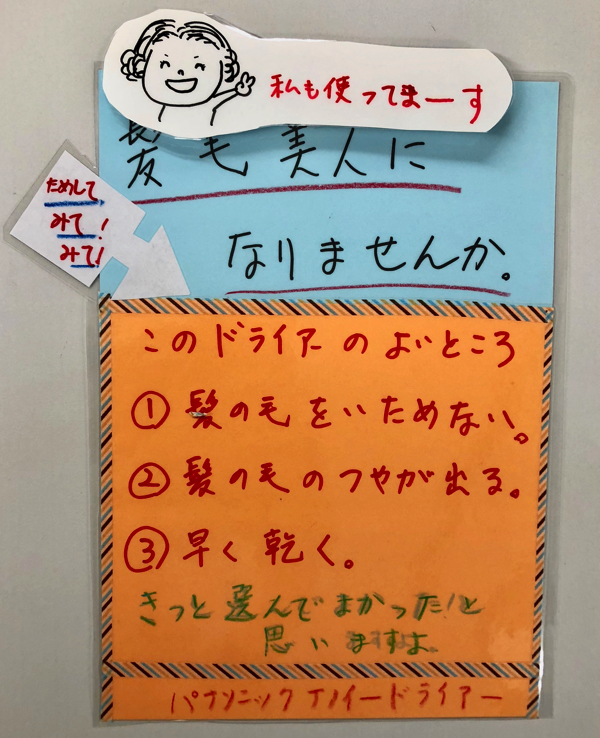 私も使ってまーす
髪毛美人に
なりませんか。
ためして
みて!
みて!
このドライアーのよいところ
①髪の毛をいためない。
②髪の毛のつやが出る。
③早く乾く。
きっと選んでよかった!と
思いますよ。
パナソニックナノイードライアー